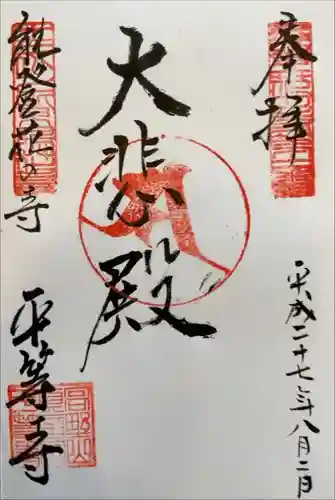 奉拝
平成二十七年八月二日
大悲殿
能登萩の寺
平等寺